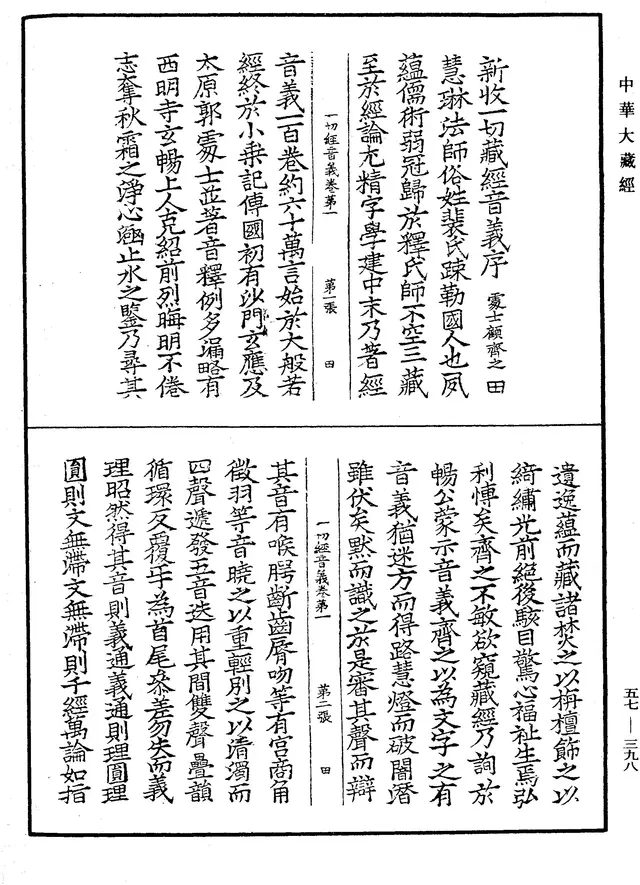 中華大藏經
新收一切藏經音義序　處士顧齊之　田
慧琳法師俗姓裴氏踈勒國人也夙
蘊儒術弱冠歸於釋氏師不空三藏
至於經論尤精字學建中末乃著經
一切經音義卷第一　第一張　田
音義一百卷約六十萬言始於大般若
經終於小乘記傳國初有沙門玄應及
太原郭處士並著音釋例多漏略有
西明寺玄暢上人克紹前烈晦明不倦
志奪秋霜之淨心極止水之鑒乃尋其
遺逸蘊而藏諸焚之以栴檀飾之以
綺繡光前絕後駭目驚心福祉生焉弘
利博矣齊之不敏欲窺藏經乃詢於
暢公蒙示音義齊之以為文字之有
音義猶迷方而得路慧燈而破闇潛
雖伏矣默而識之於是審其聲而辯
一切經音義卷第一　第二張　田
其音有喉腭齗齒脣吻等有宮商角
徵羽等音曉之以重輕別之以清濁而
四聲遞發五音迭用其間雙聲疊韻
循環反覆乎為首尾叅差勿失而義
理昭然得其音則義通義通則理圓理
圓則文無滯文無滯則千經萬論如指
五七—三九八